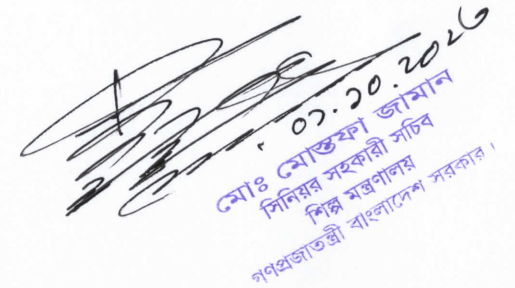 ০১.১০.২০২৬
মোঃ মোস্তফা জামান
সিনিয়র সহকারী সচিব
শিল্প মন্ত্রণালয়
গণপ্রজাতন্ত্রী বাংলাদেশ সরকার।